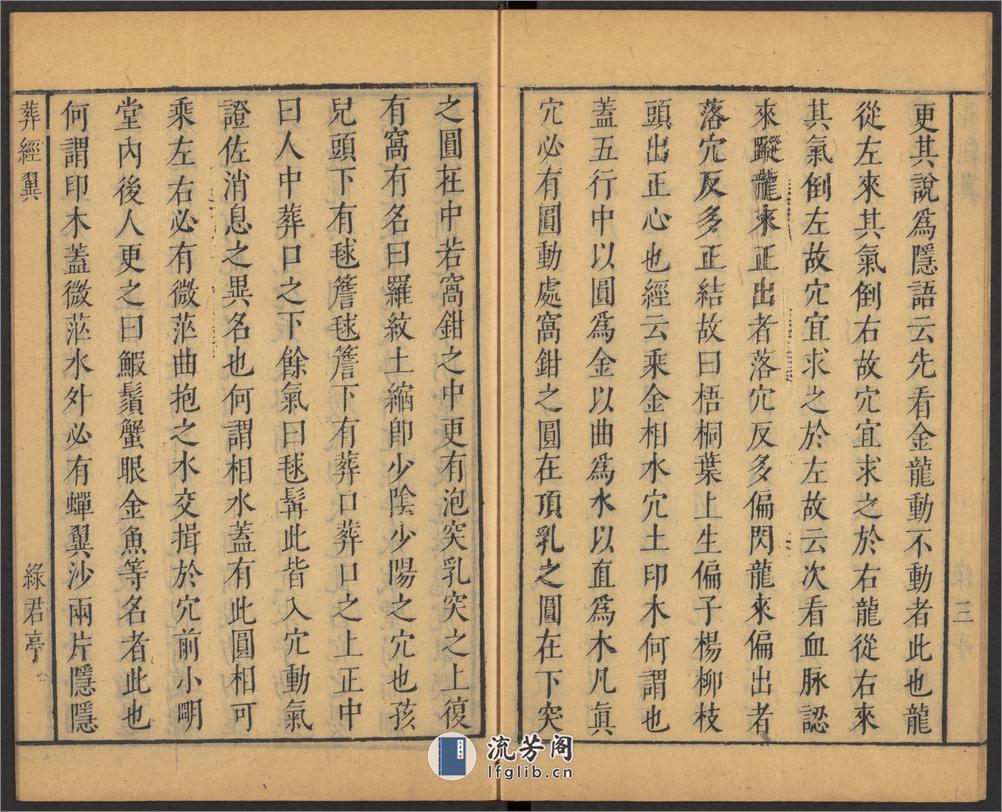 更其說爲隱語云先看金龍動不動者此也龍
從左來其氣倒右故穴宜求之於右龍從右來
其氣倒左故穴宜求之於左故云次看血脉認
來蹤龍來正出者落穴反多偏閃龍來偏出者
落穴反多正結故曰梧桐葉上生偏子楊柳枝
頭出正心也經云乘金相水穴土印木何謂也
蓋五行中以圓爲金以曲爲水以直爲木凡眞
穴必有圓動處窩鉗之圓在頂乳之圓在下突
三
之圓在中若窩鉗之中更有泡突乳突之上復
有窩有名曰羅紋土縮卽少陰少陽之穴也孩
兒頭下有毬簷毬簷下有葬口葬口之上正中
曰人中葬口之下餘氣曰毬髯此皆入穴動氣
證佐消息之異名也何謂相水蓋有此圓相可
乘左右必有微茫曲抱之水交揖於穴前小明
堂內後人更之曰鰕鬚蟹眼金魚等名者此也
何謂印木蓋微茫水外必有蟬翼沙兩片隱隱
葬經翼
綠君亭
流芳阁
lfglib.cn